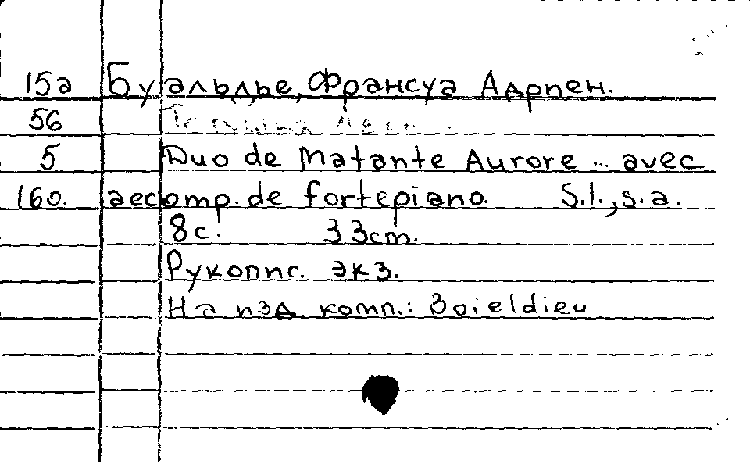 15а Буальдье, Франсуа Адриен.
56
5 Duo de Matante Aurore ... avec
160. accomp. de fortepiano. S.l., s.a.
8с. 33cm.
Рукопис. экз.
На изд. комп.: Boieldieu